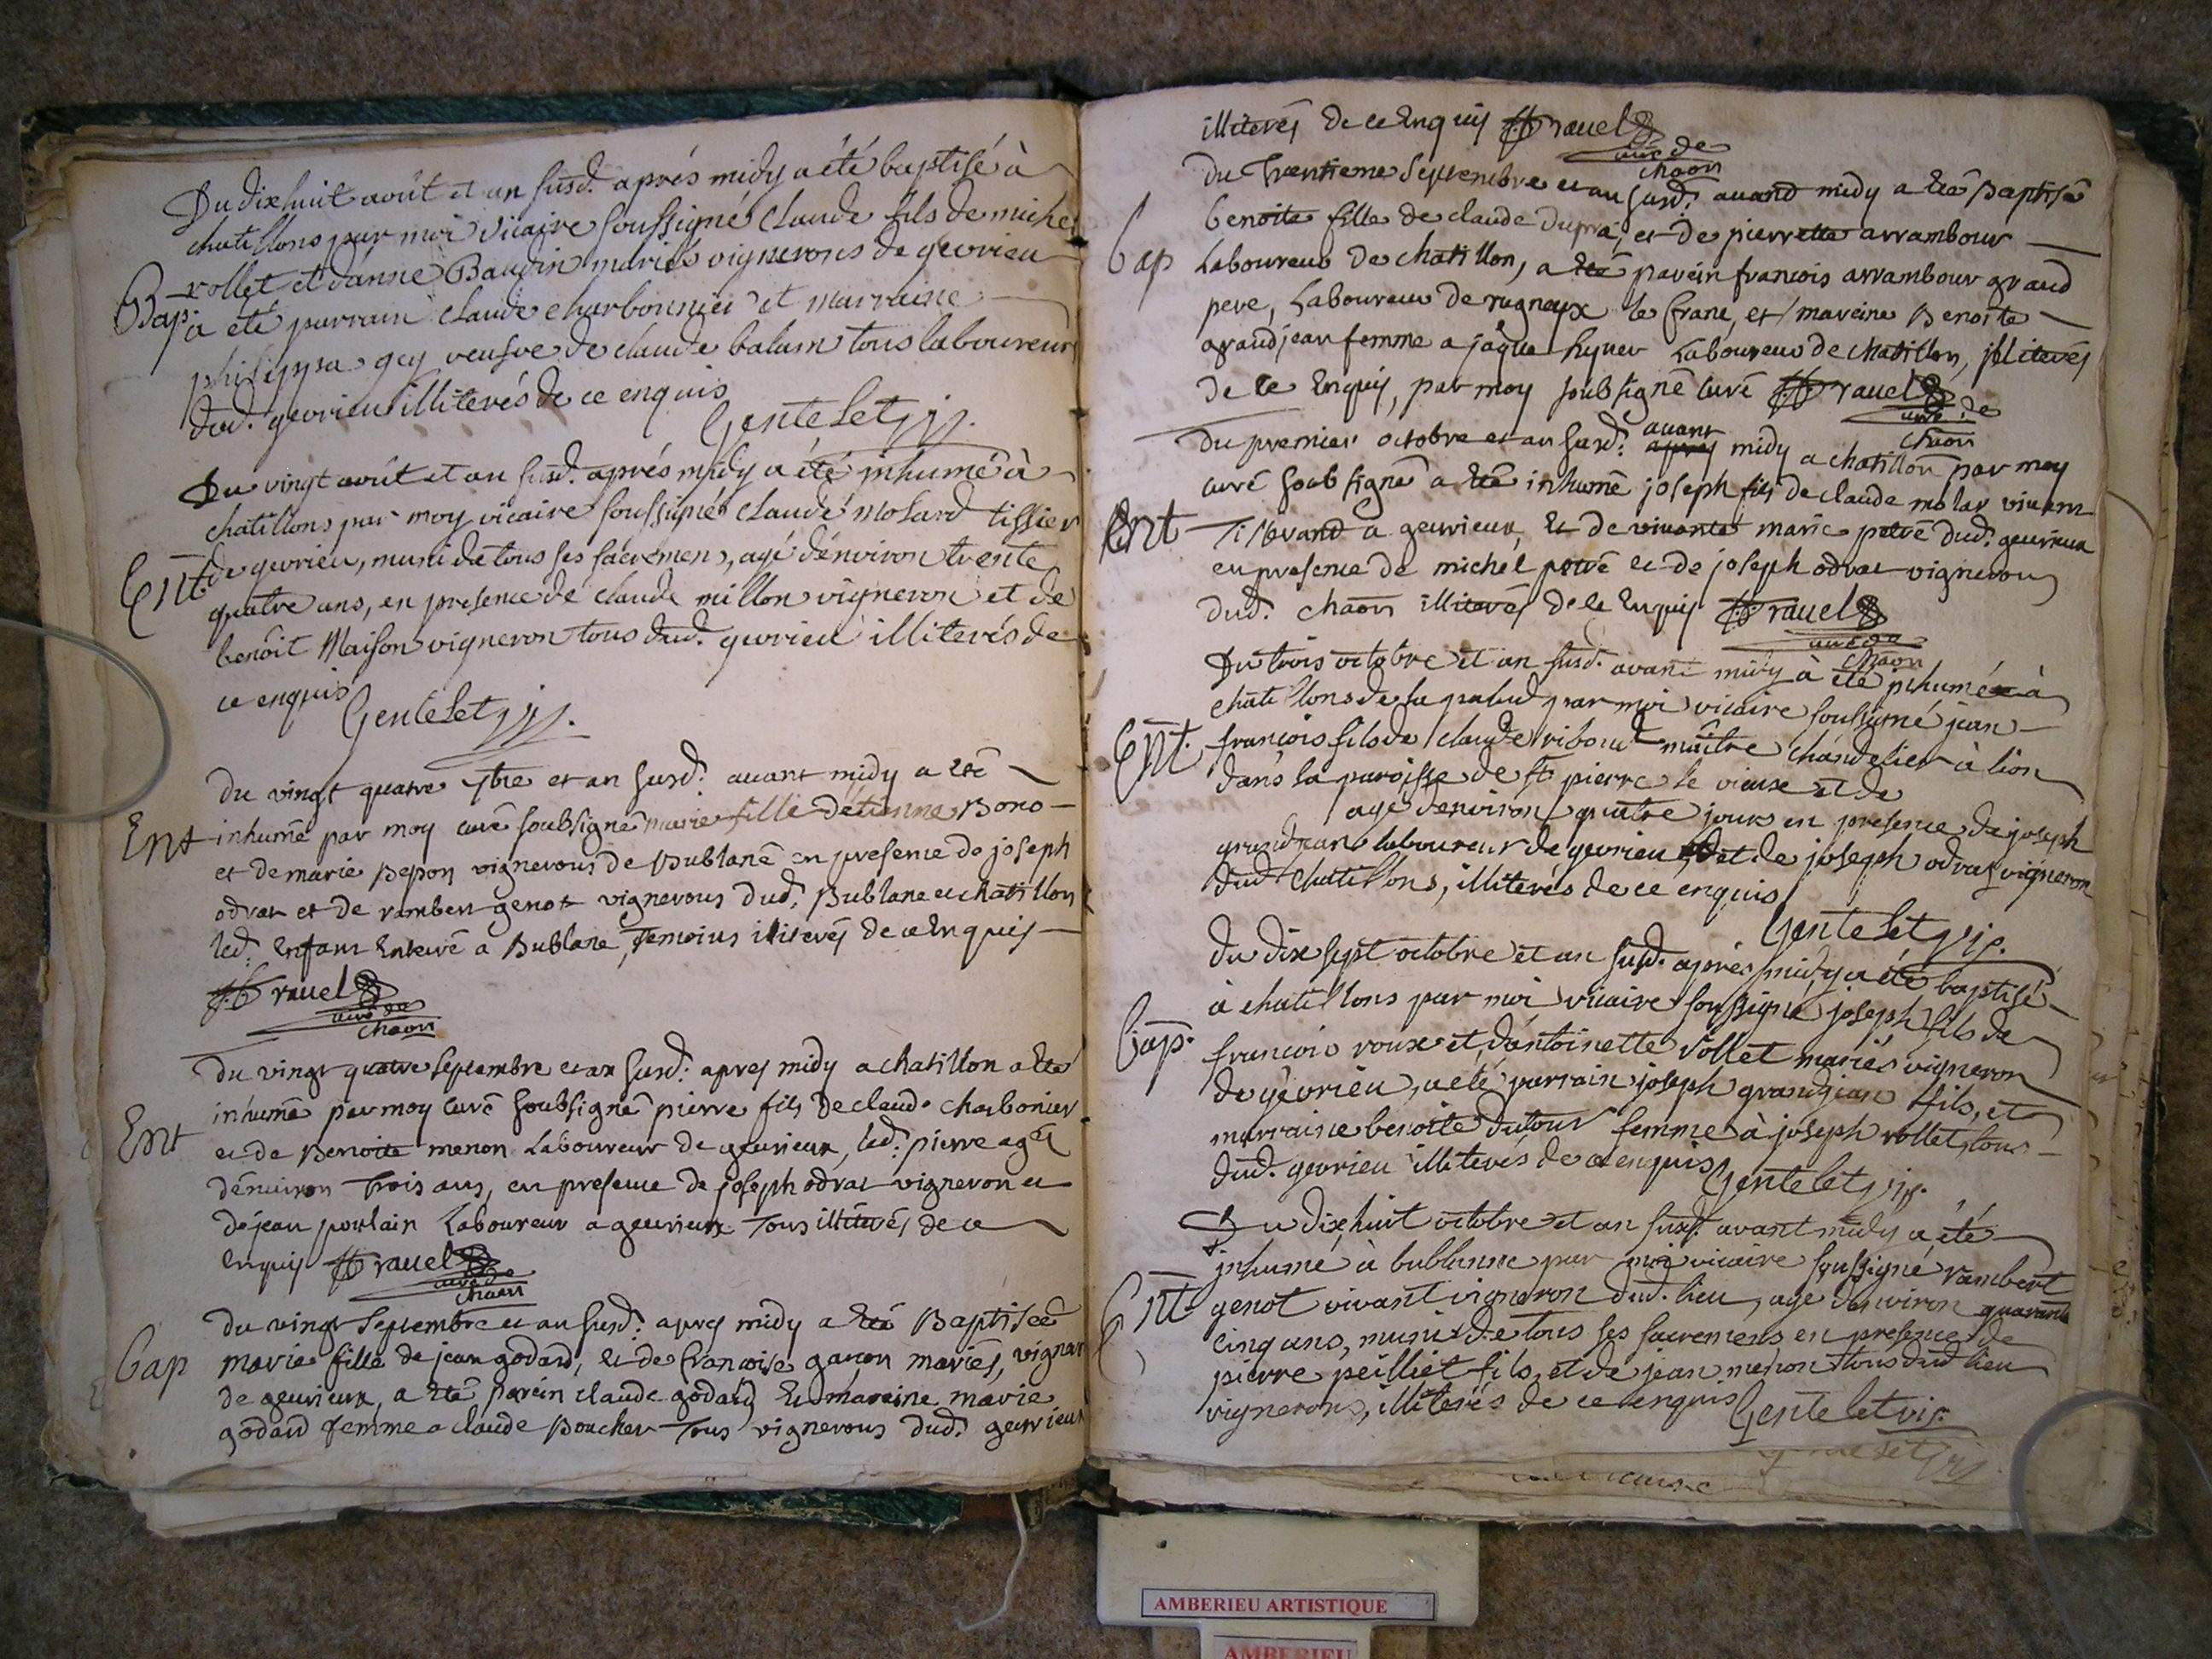 Du dix huit août et an susd. aprés midy a été baptisé à
chatillons par moi vicaire soussigné claude fils de miche
rollet et d'anne Baudin mariés vignerons de gevrieu
Bap. a été parrain claude charbonnier et marraine
philippa gey veufve de claude balam tous laboureurs
dud. gevrieu illiterés de ce enquis
Gentelet
Du vingt août et an susd. aprés midy a été inhumé à
chatillons par moy vicaire soussigné claude molard tissier
Ent. de gevrieu, muni de tous ses sacremens, agé d'environ trente
quatre ans, en presence de claude millon vigneron et de
benoit Maison vigneron tous dud. gevrieu illiterés de
ce enquis
Gentelet
du vingt quatre 7bre et an susd: auant midy a eté
Ent inhumé par moy curé soubsigné marie fille d'étienne Bono
et de marie pepon vignerous de Bublane en presense de joseph
odrat et de rambert genot vignerous dud. Bublane et chatillon
led. Enfant Enterré a Bublane, temoins illiterés de ce Enquis
ravel
curé de
chaon
du vingt quatre septembre et an susd: apres midy a chatillon a eté
inhumé par moy curé soubsigné pierre fils de claude charbonier
Ent et de Benoite menon Laboureur de geurieux, led: pierre agé
d'environ trois ans, en presense de joseph odrat vigneron et
de jean poulain Laboureur a geurieux tous illiterés de ce
Enquis ravel
curé de
chaon
du vingt septembre et an susd: apres midy a eté Baptisée
bap marie fille de jean godard, et de francoise garçon mariés, vigner
de geurieux, a eté parein claude godard et mareine marie
godard femme a claude Boucher tous vignerous dud. geurieux
illiterés de ce Enquis ravel
curé de
chaon
du Trentieme septembre et an susd: auand midy a eté Baptisé
benoite fille de claude dupra, et de pierrette arrambour
bap Laboureur de chatillon, a eté parein francois arrambour grand
pere, Laboureur de rugneux le franc, et mareine Benoite
grandjean femme a jaque hyver Laboureur de chatillon, illiterés
de ce Enquis, par moy soubsigné curé ravel
curé de
chaon
du premier octobre et an susd: auant apres midy a chatillon par moy
curé soubsigné a eté inhumé joseph fils de claude molar vivant
Ent Tisserand a geurieux, et de vivante marie petré dud. geurieux
en presense de michel petré et de joseph odrat vignerou
dud. chaon illiterés de ce Enquis ravel
curé de
chaon
Du trois octobre et an susd. avant midy à été inhumé à
chatillons de la palud par moi vicaire soussigné jean
Ent. francois fils de claude riboud maître chandelier à lion
dans la paroisse de st pierre le vieux et de
agé d'environ quatre jours en presence de joseph
grandjean laboureur de gevrieu et de joseph odrat vigneron
dud. chatillons, illiterés de ce enquis
Gentelet vic.
Du dix sept octobre et an susd. aprés midy a été baptisé
à chatillons par moi vicaire soussigné joseph fils de
bap. francois roux et d'antoinette vollet mariés vigneron
de gevrieu, a été parrain joseph grandjean fils, et
marraine benoite dutour femme à joseph vollet tous
dud. gevrieu illiterés de ce enquis Gentelet vic.
Du dix huit octobre et an susd. avant midy a été
inhumé à bublanne par moi vicaire soussigné rambert
Ent. genot vivant vigneron dud. lieu, agé d'environ quarante
cinq ans, muni de tous ses sacremens en presence de
pierre peilliet fils, et de jean menon tous dud. lieu
vignerons, illiterés de ce enquis Gentelet vic.
AMBERIEU ARTISTIQUE
AMBERIEU